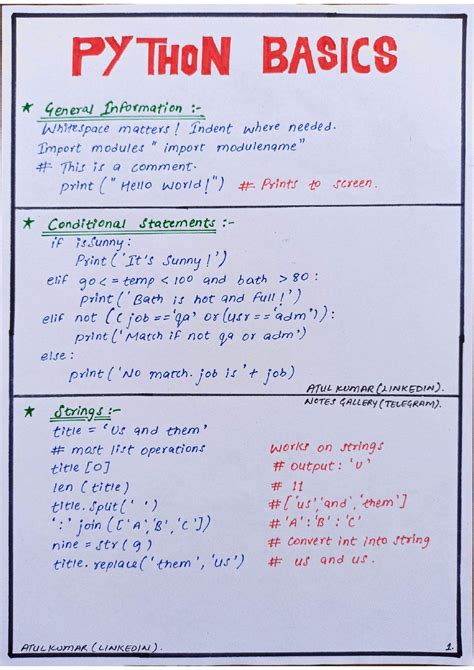 PYTHON BASICS
★ General Information :-
Whitespace matters! Indent where needed.
Import modules "import modulename"
# This is a comment.
print ("Hello World!") # Prints to screen.
★ Conditional Statements :-
if isSunny:
Print ('It's Sunny!')
elif 90 <= temp < 100 and bath > 80:
print ('Bath is hot and full!')
elif not ((job == 'qa' or (usr == 'adm')):
print ('Match if not qa or adm')
else:
print ('No match. job is' + job)
ATUL KUMAR (LINKEDIN).
NOTES GALLERY (TELEGRAM).
★ Strings :-
title = 'Us and them'
# most list operations works on strings
title [0] # output: 'U'
len (title) # 11
title. split (' ') # ['us','and','them']
':' join (['A','B','C']) # 'A':'B':'C'
nine = str (9) # Convert int into string
title. replace ('them', 'us') # us and us.
ATUL KUMAR (LINKEDIN). 1.